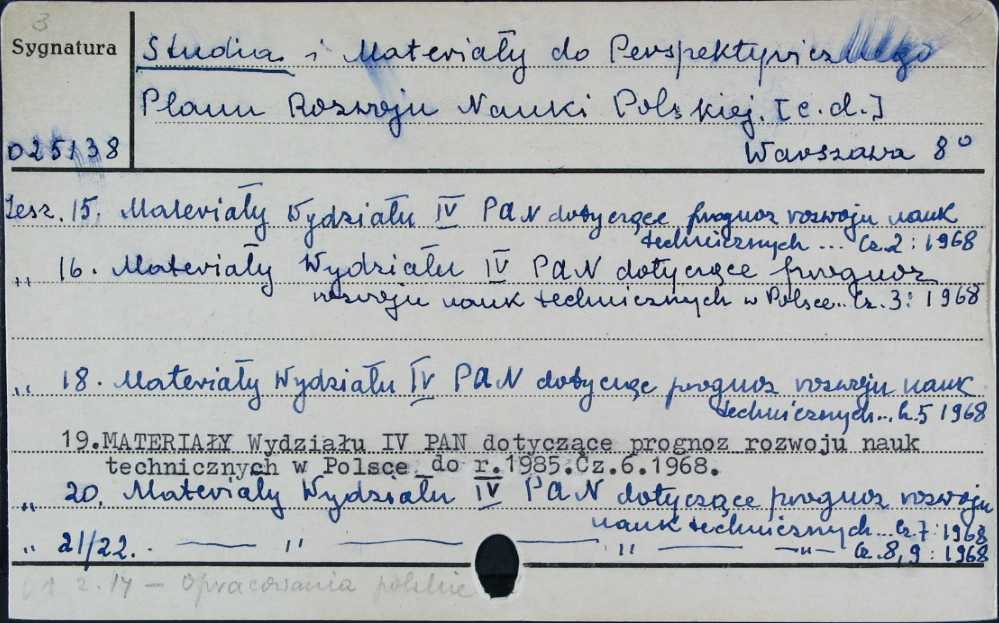 3
Sygnatura
Studia i Materiały do Perspektywicznego
Planu Rozwoju Nauki Polskiej. [c.d.]
025138
Warszawa 8°
Zesz. 15. Materiały Wydziału IV PAN dotyczące prognoz rozwoju nauk
technicznych ... Cz.2: 1968
„ 16. Materiały Wydziału IV PAN dotyczące prognoz
rozwoju nauk technicznych w Polsce.. Cz. 3: 1968
„ 18. Materiały Wydziału IV PAN dotycząc prognoz rozwoju nauk
technicznych... Cz.5 1968
19.MATERIAŁY Wydziału IV PAN dotyczące prognoz rozwoju nauk
technicznych w Polsce do r.1985.Cz.6.1968.
„ 20. Materiały Wydziału IV PAN dotyczące prognoz rozwoju
nauk technicznych... Cz.7: 1968
„ 21/22. — „ — — „ — — „ — Cz. 8, 9: 1968
2.17 — Opracowania polskie